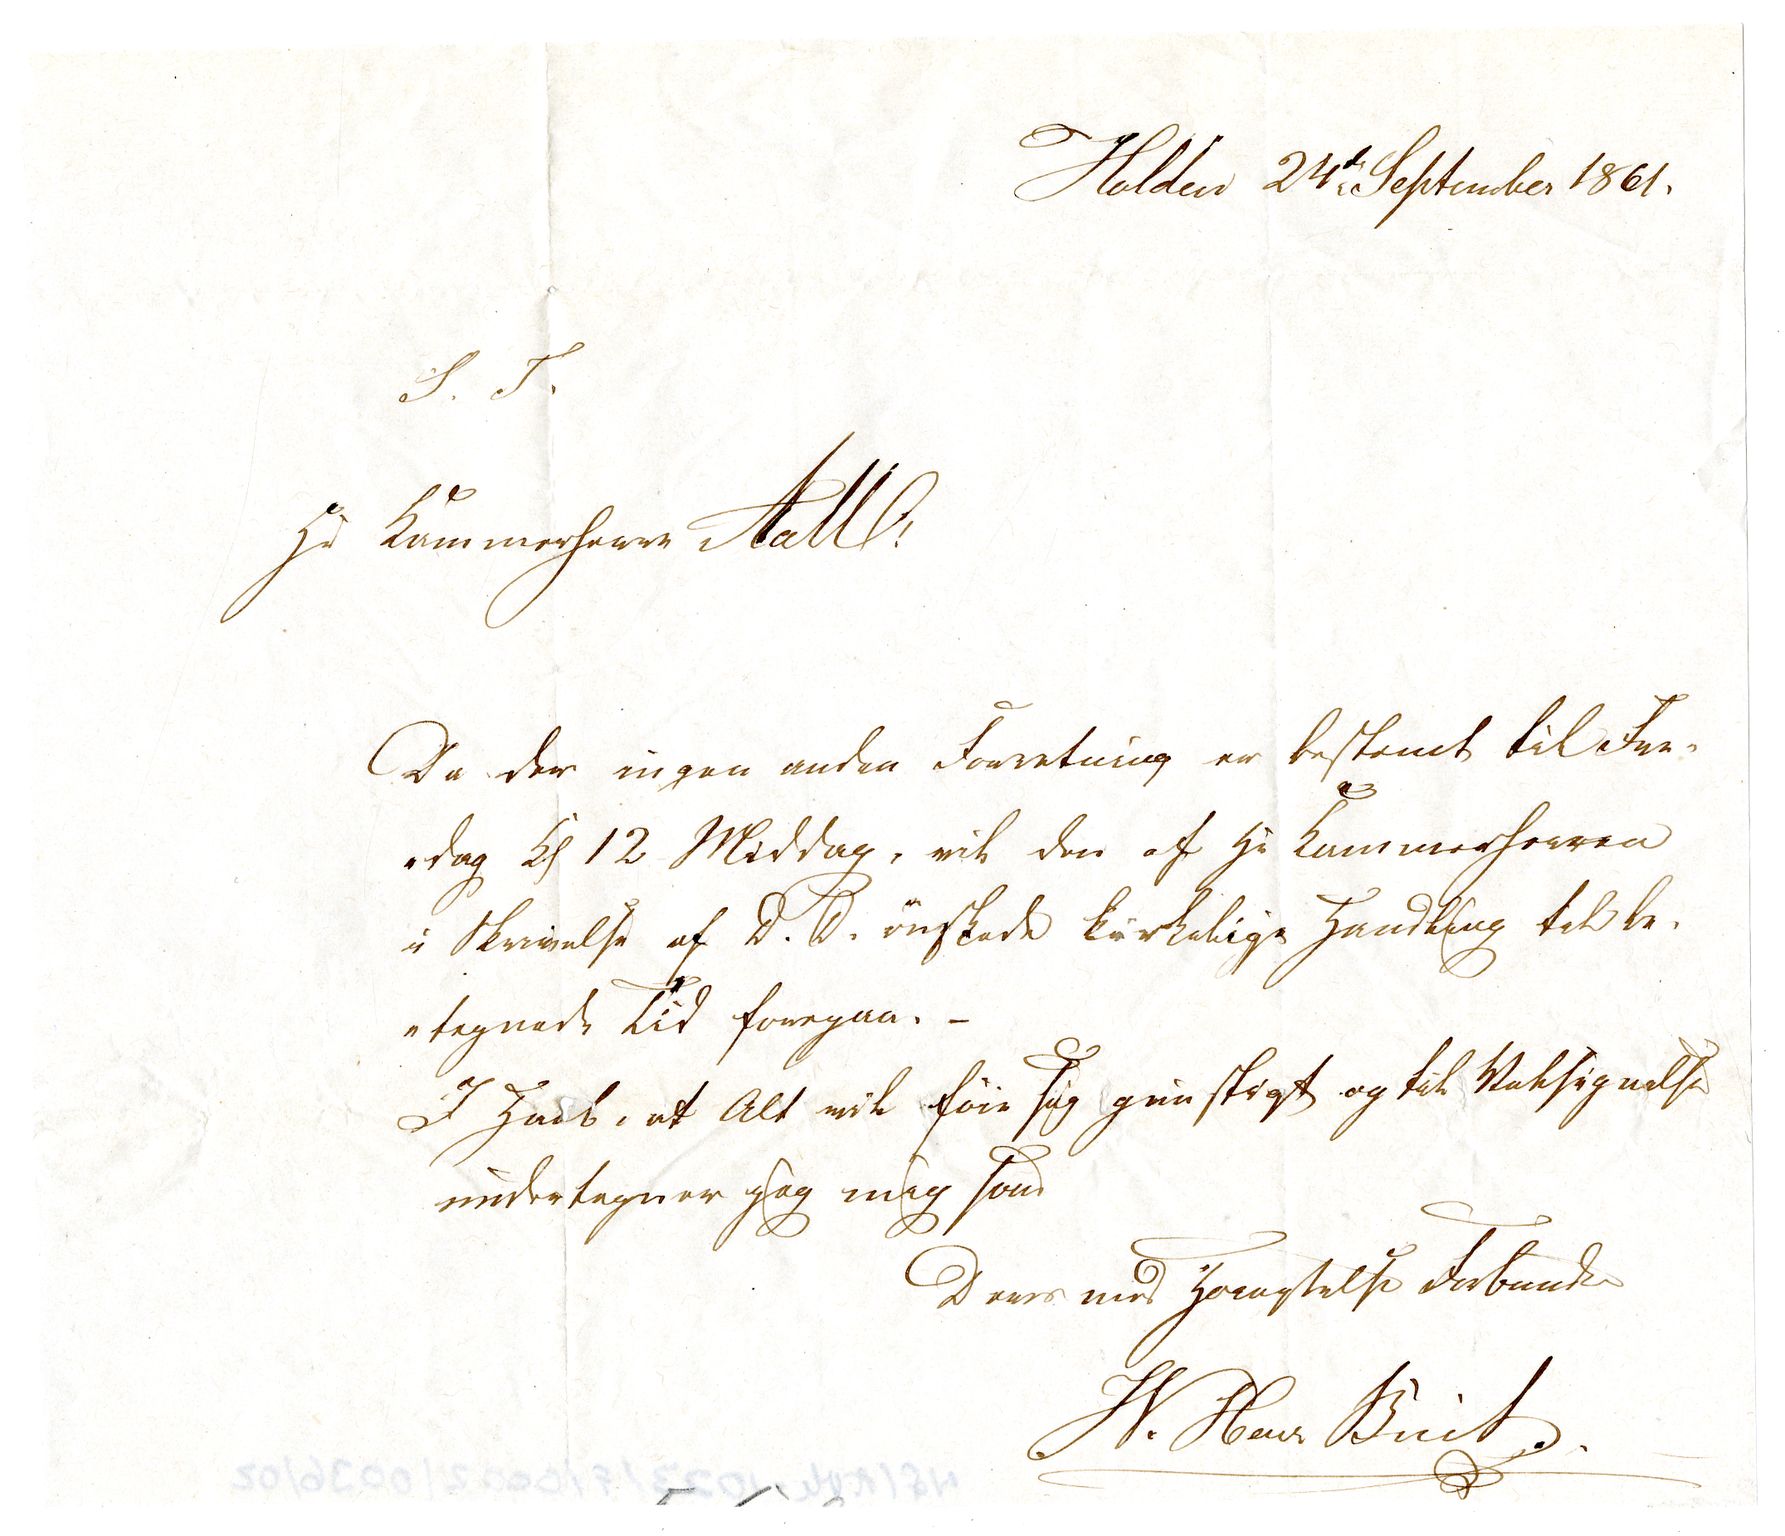 Holden 24de September 1861.
S. T.
Hr Kammerherre Aall!
Da der ingen anden Forretning er bestemt til Fre-
-dag Kl 12 Middag, vil den af Hr Kammerherren
i Skrivelse af D. D. önskede kirkelige Handling til be-
-tegnede Tid foregaa. -
I Haab, at Alt vil föie sig gunstigt og til Velsignelse
undertegner jeg mig som
Deres med Höiagtelse Forbundne
W.